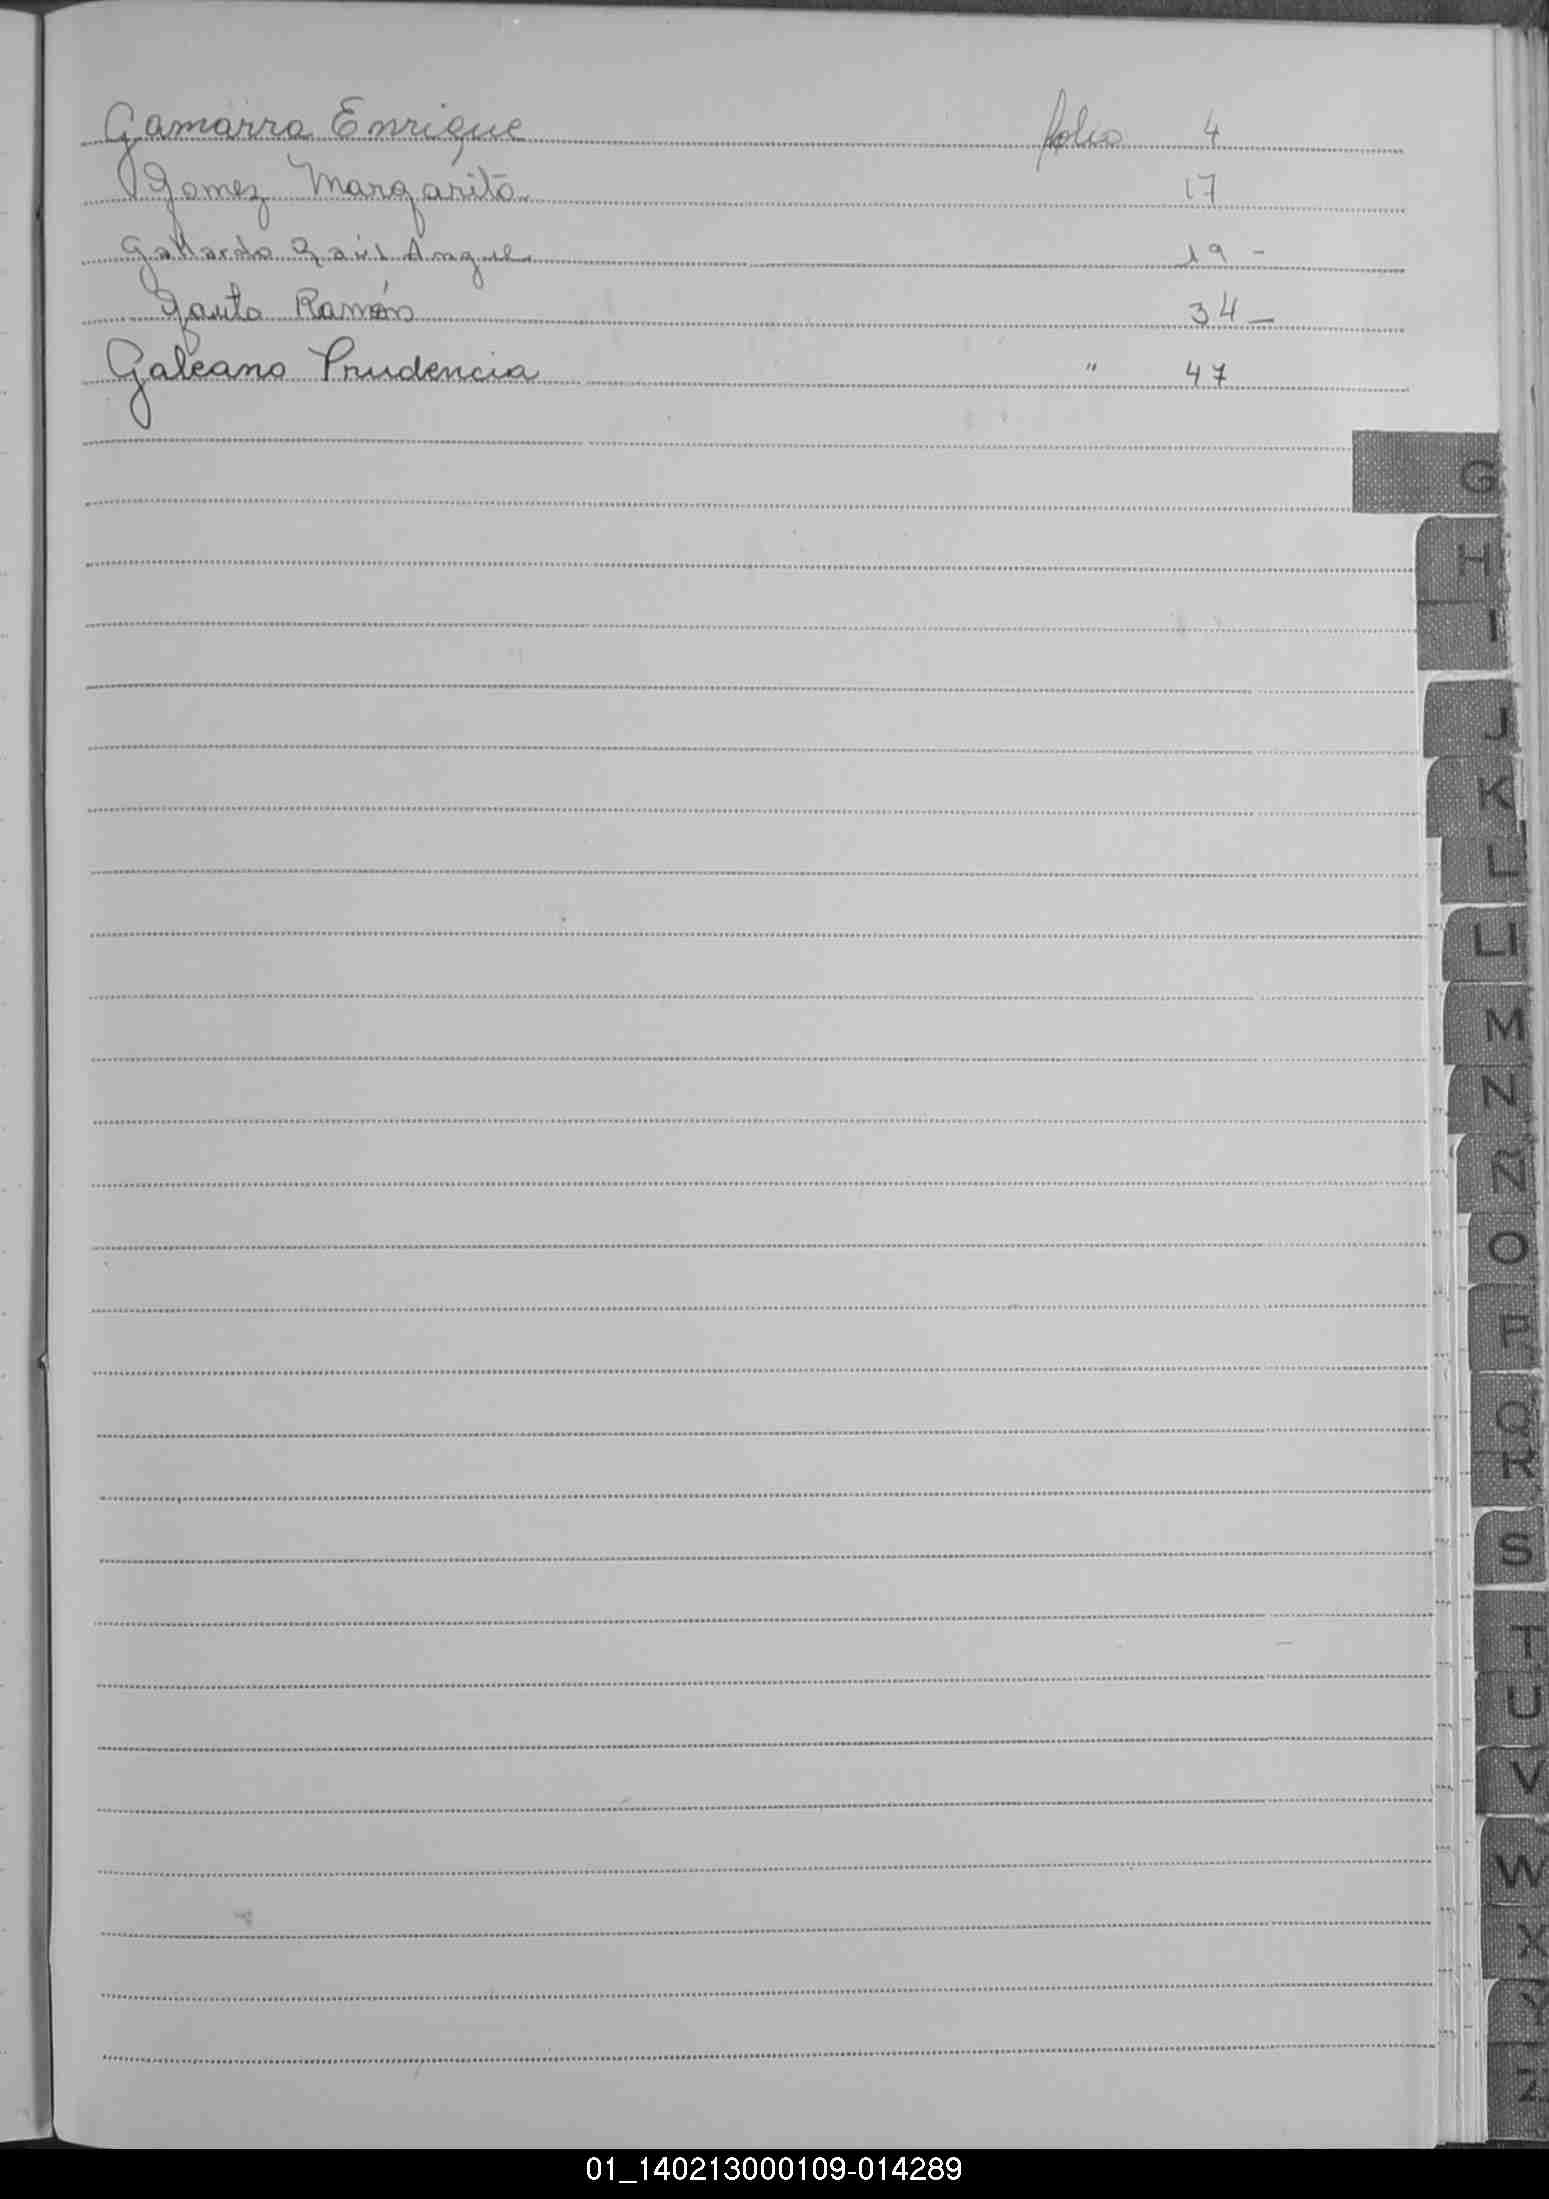 Gamarra Enrique folio 4
Gomez Margarita 17
Gallardo Raúl Angel 19 -
Gauto Ramón 34 -
Galeano Prudencia " 47
G
H
I
J
K
L
Ll
M
N
Ñ
O
P
Q
R
S
T
U
V
W
X
Y
Z
01_140213000109-014289